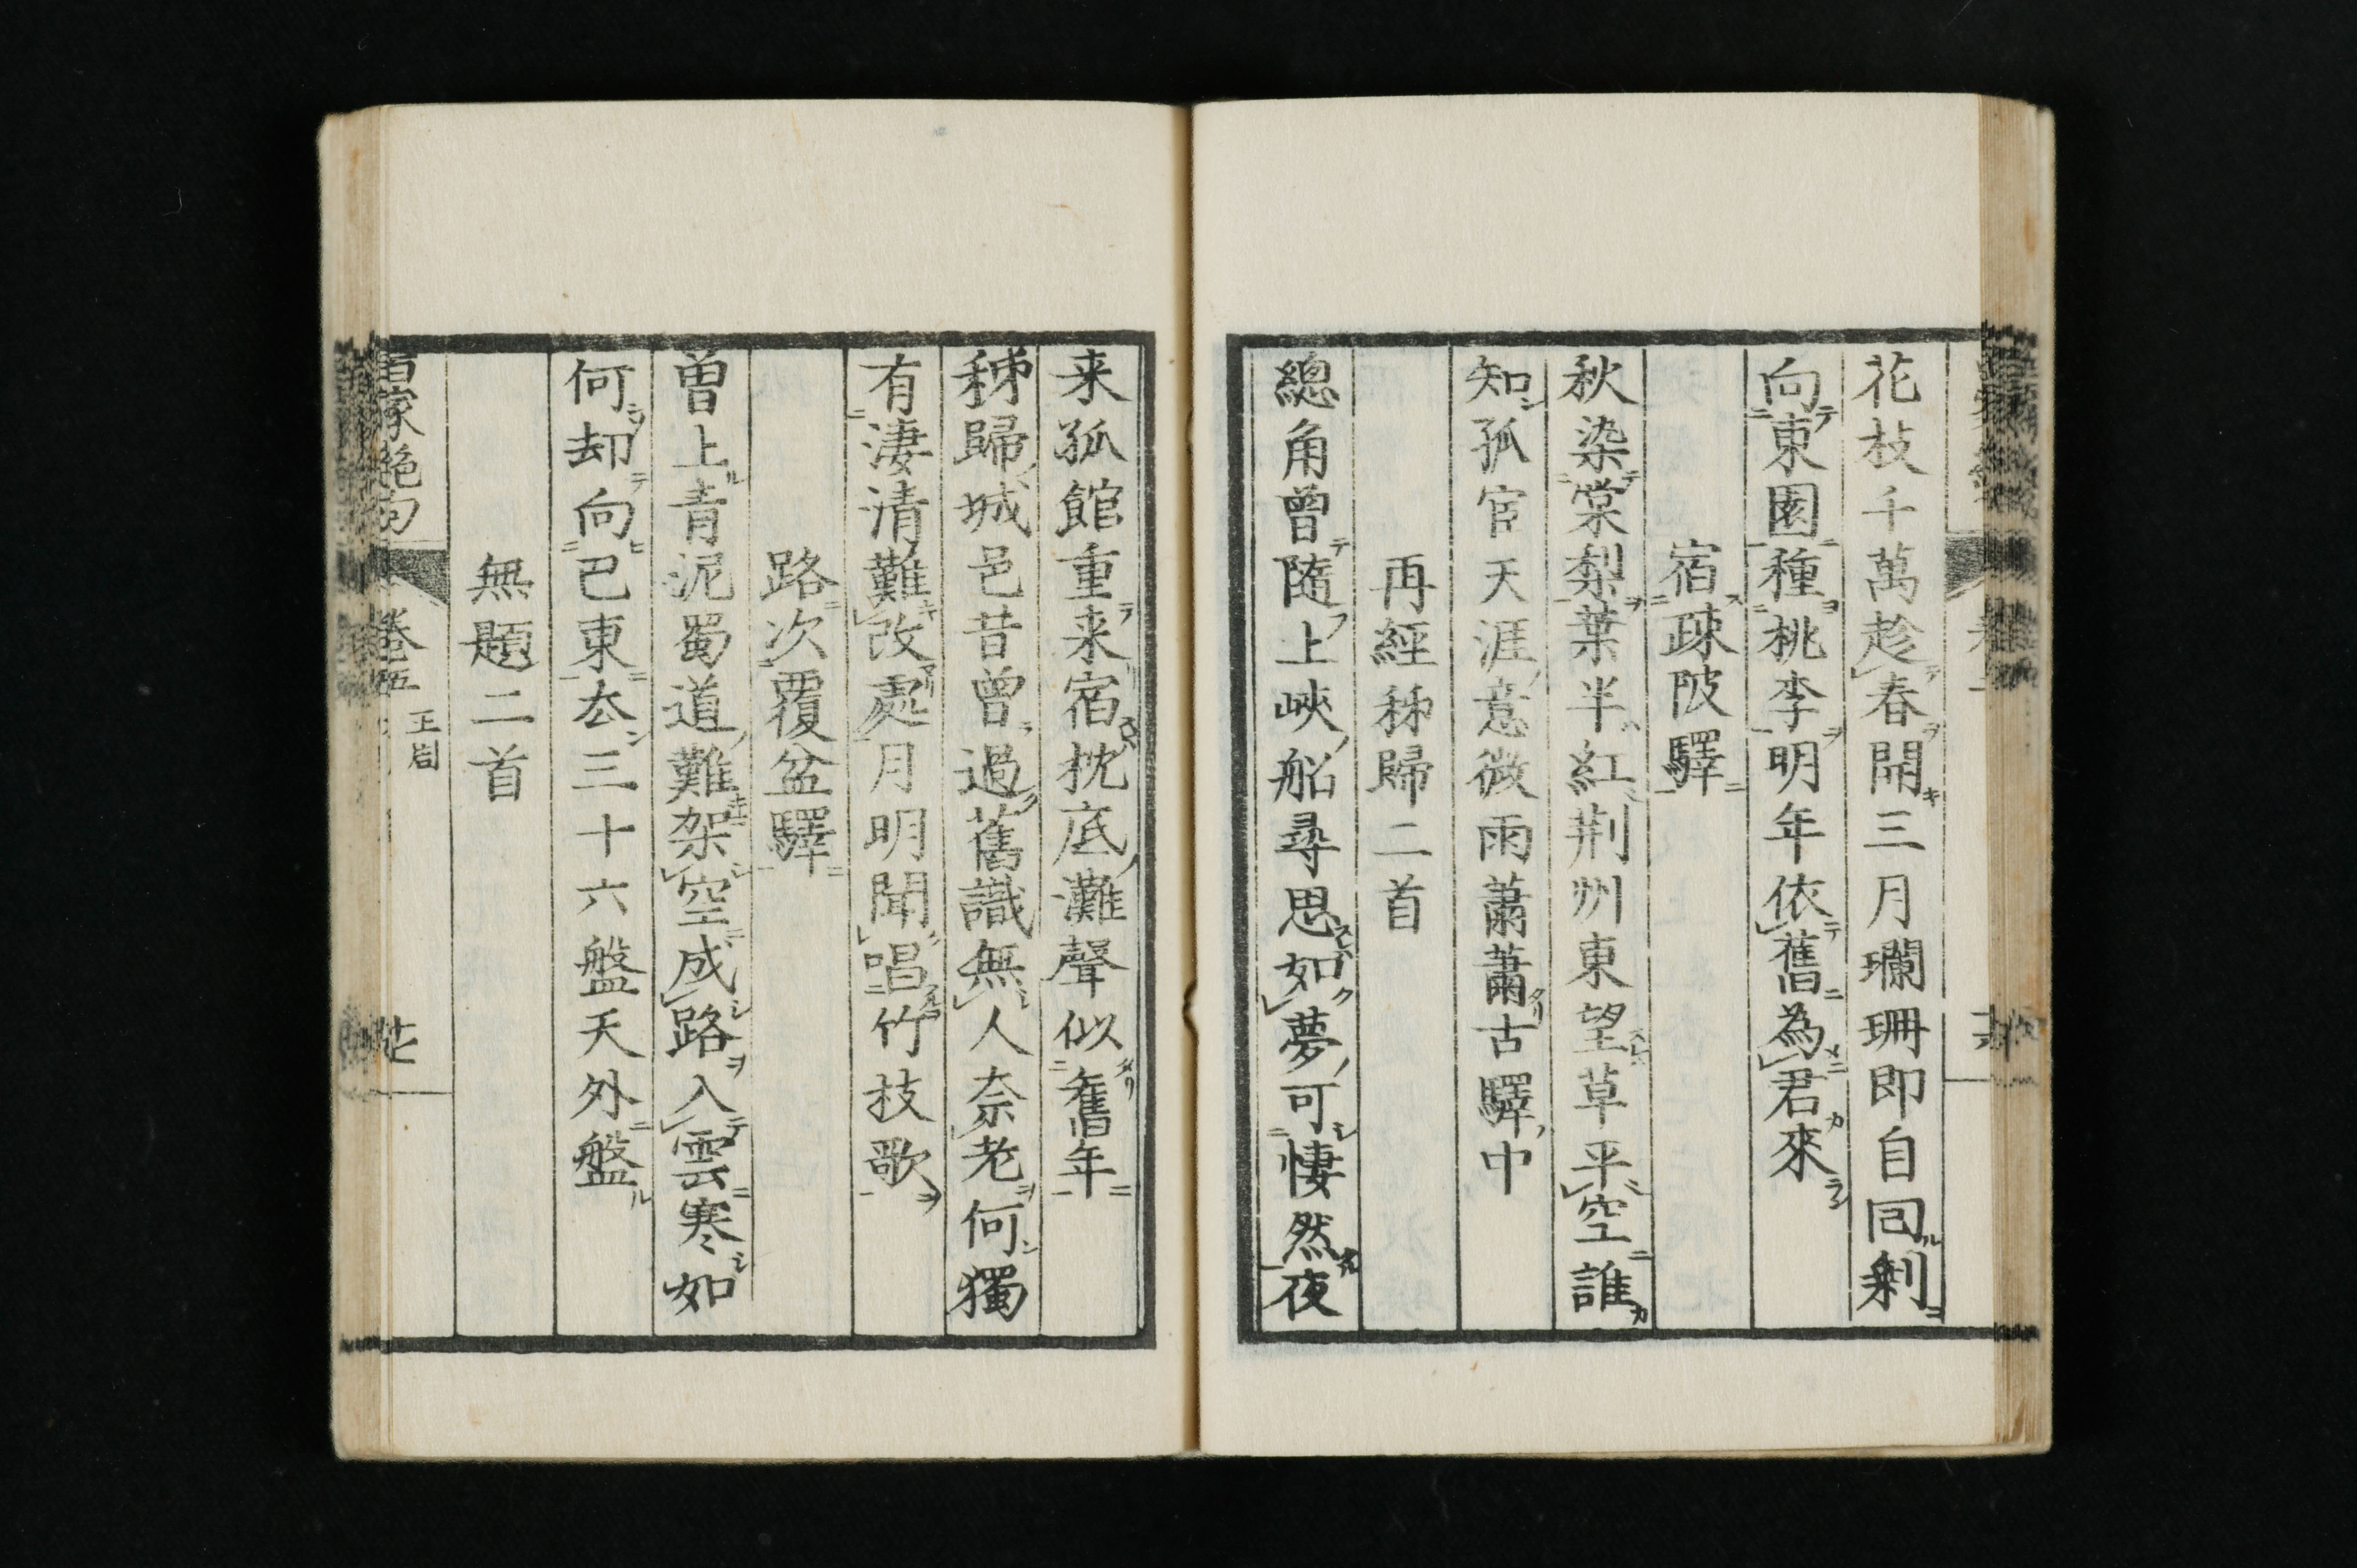 花枝千萬趁春開三月瓓珊即自回剩
向東園種桃李明年依舊為君來
宿疎陂驛
秋染棠梨葉半紅荆州東望草平空誰
知孤宦天涯意微雨蕭蕭古驛中
再經秭歸二首
總角曾隨上峽船尋思如夢可悽然夜
来孤館重来宿枕底灘聲似舊年
秭歸城邑昔曾過舊識無人奈老何獨
有淒清難改處月明聞唱竹枝歌
路次覆盆驛
曽上青泥蜀道難架空成路入雲寒如
何却向巴東去三十六盤天外盤
無題二首
百家絶句 卷五 王周